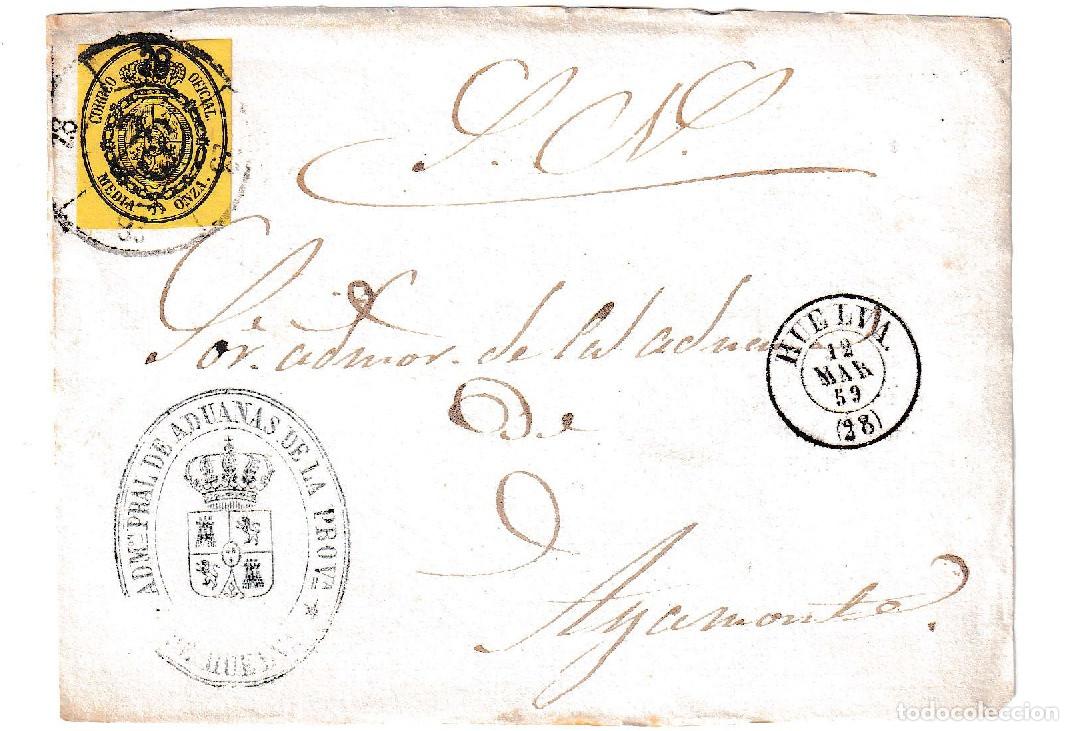 CORREO OFICIAL.
MEDIA ONZA.
28
28
S. N.
Sor. admor. de la adua
de
Ayamonte.
HUELVA.
12
MAR
59
(28)
ADMon. PRAL DE ADUANAS DE LA PROVa. *
DE HUELVA
todocoleccion